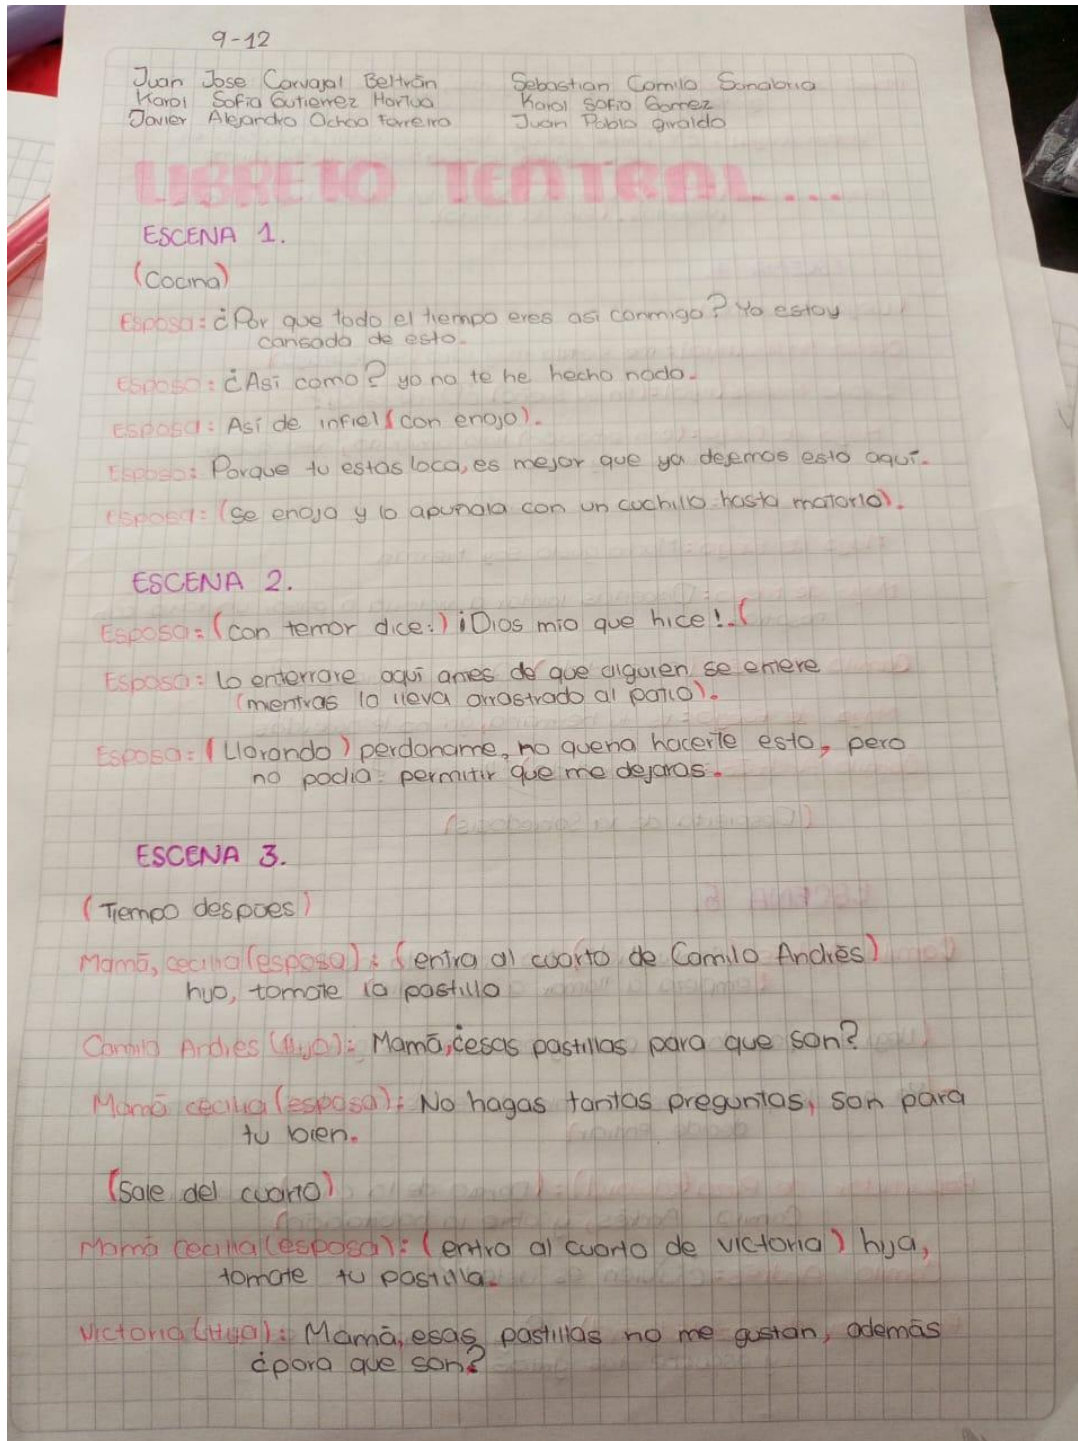 9-12
Juan Jose Carvajal Beltrán
Karol Sofia Gutierrez Hortua
Javier Alejandro Ochoa Farreiro
Sebastian Camilo Sanabria
Karol Sofia Gomez
Juan Pablo giraldo
LIBRETO TEATRAL...
ESCENA 1.
(Cocina)
Esposa: ¿Por que todo el tiempo eres asi conmigo? Yo estoy
cansada de esto.
Esposo: ¿Asi como? yo no te he hecho nada.
Esposa: Así de infiel (con enojo).
Esposo: Porque tu estas loca, es mejor que ya dejemos esto aquí.
Esposa: (se enoja y lo apuñala con un cuchillo hasta matarlo).
ESCENA 2.
Esposa: (con temor dice:) ¡Dios mio que hice!. (
Esposa: lo enterrare aquí antes de que alguien se entere
(mientras lo lleva arrastrado al patio).
Esposa: (Llorando) perdoname, no queria hacerte esto, pero
no podia permitir que me dejaras.
ESCENA 3.
(Tiempo despues)
Mamá, cecilia (esposa): (entra al cuarto de Camilo Andrés)
hijo, tomate la pastilla
Camilo Andres (Hijo): Mamá, ¿esas pastillas para que son?
Mamá cecilia (esposa): No hagas tantas preguntas, son para
tu bien.
(Sale del cuarto)
Mamá Cecilia (esposa): (entra al cuarto de victoria) hija,
tomate tu pastilla.
Victoria (Hija): Mamá, esas pastillas no me gustan, además
¿para que son?